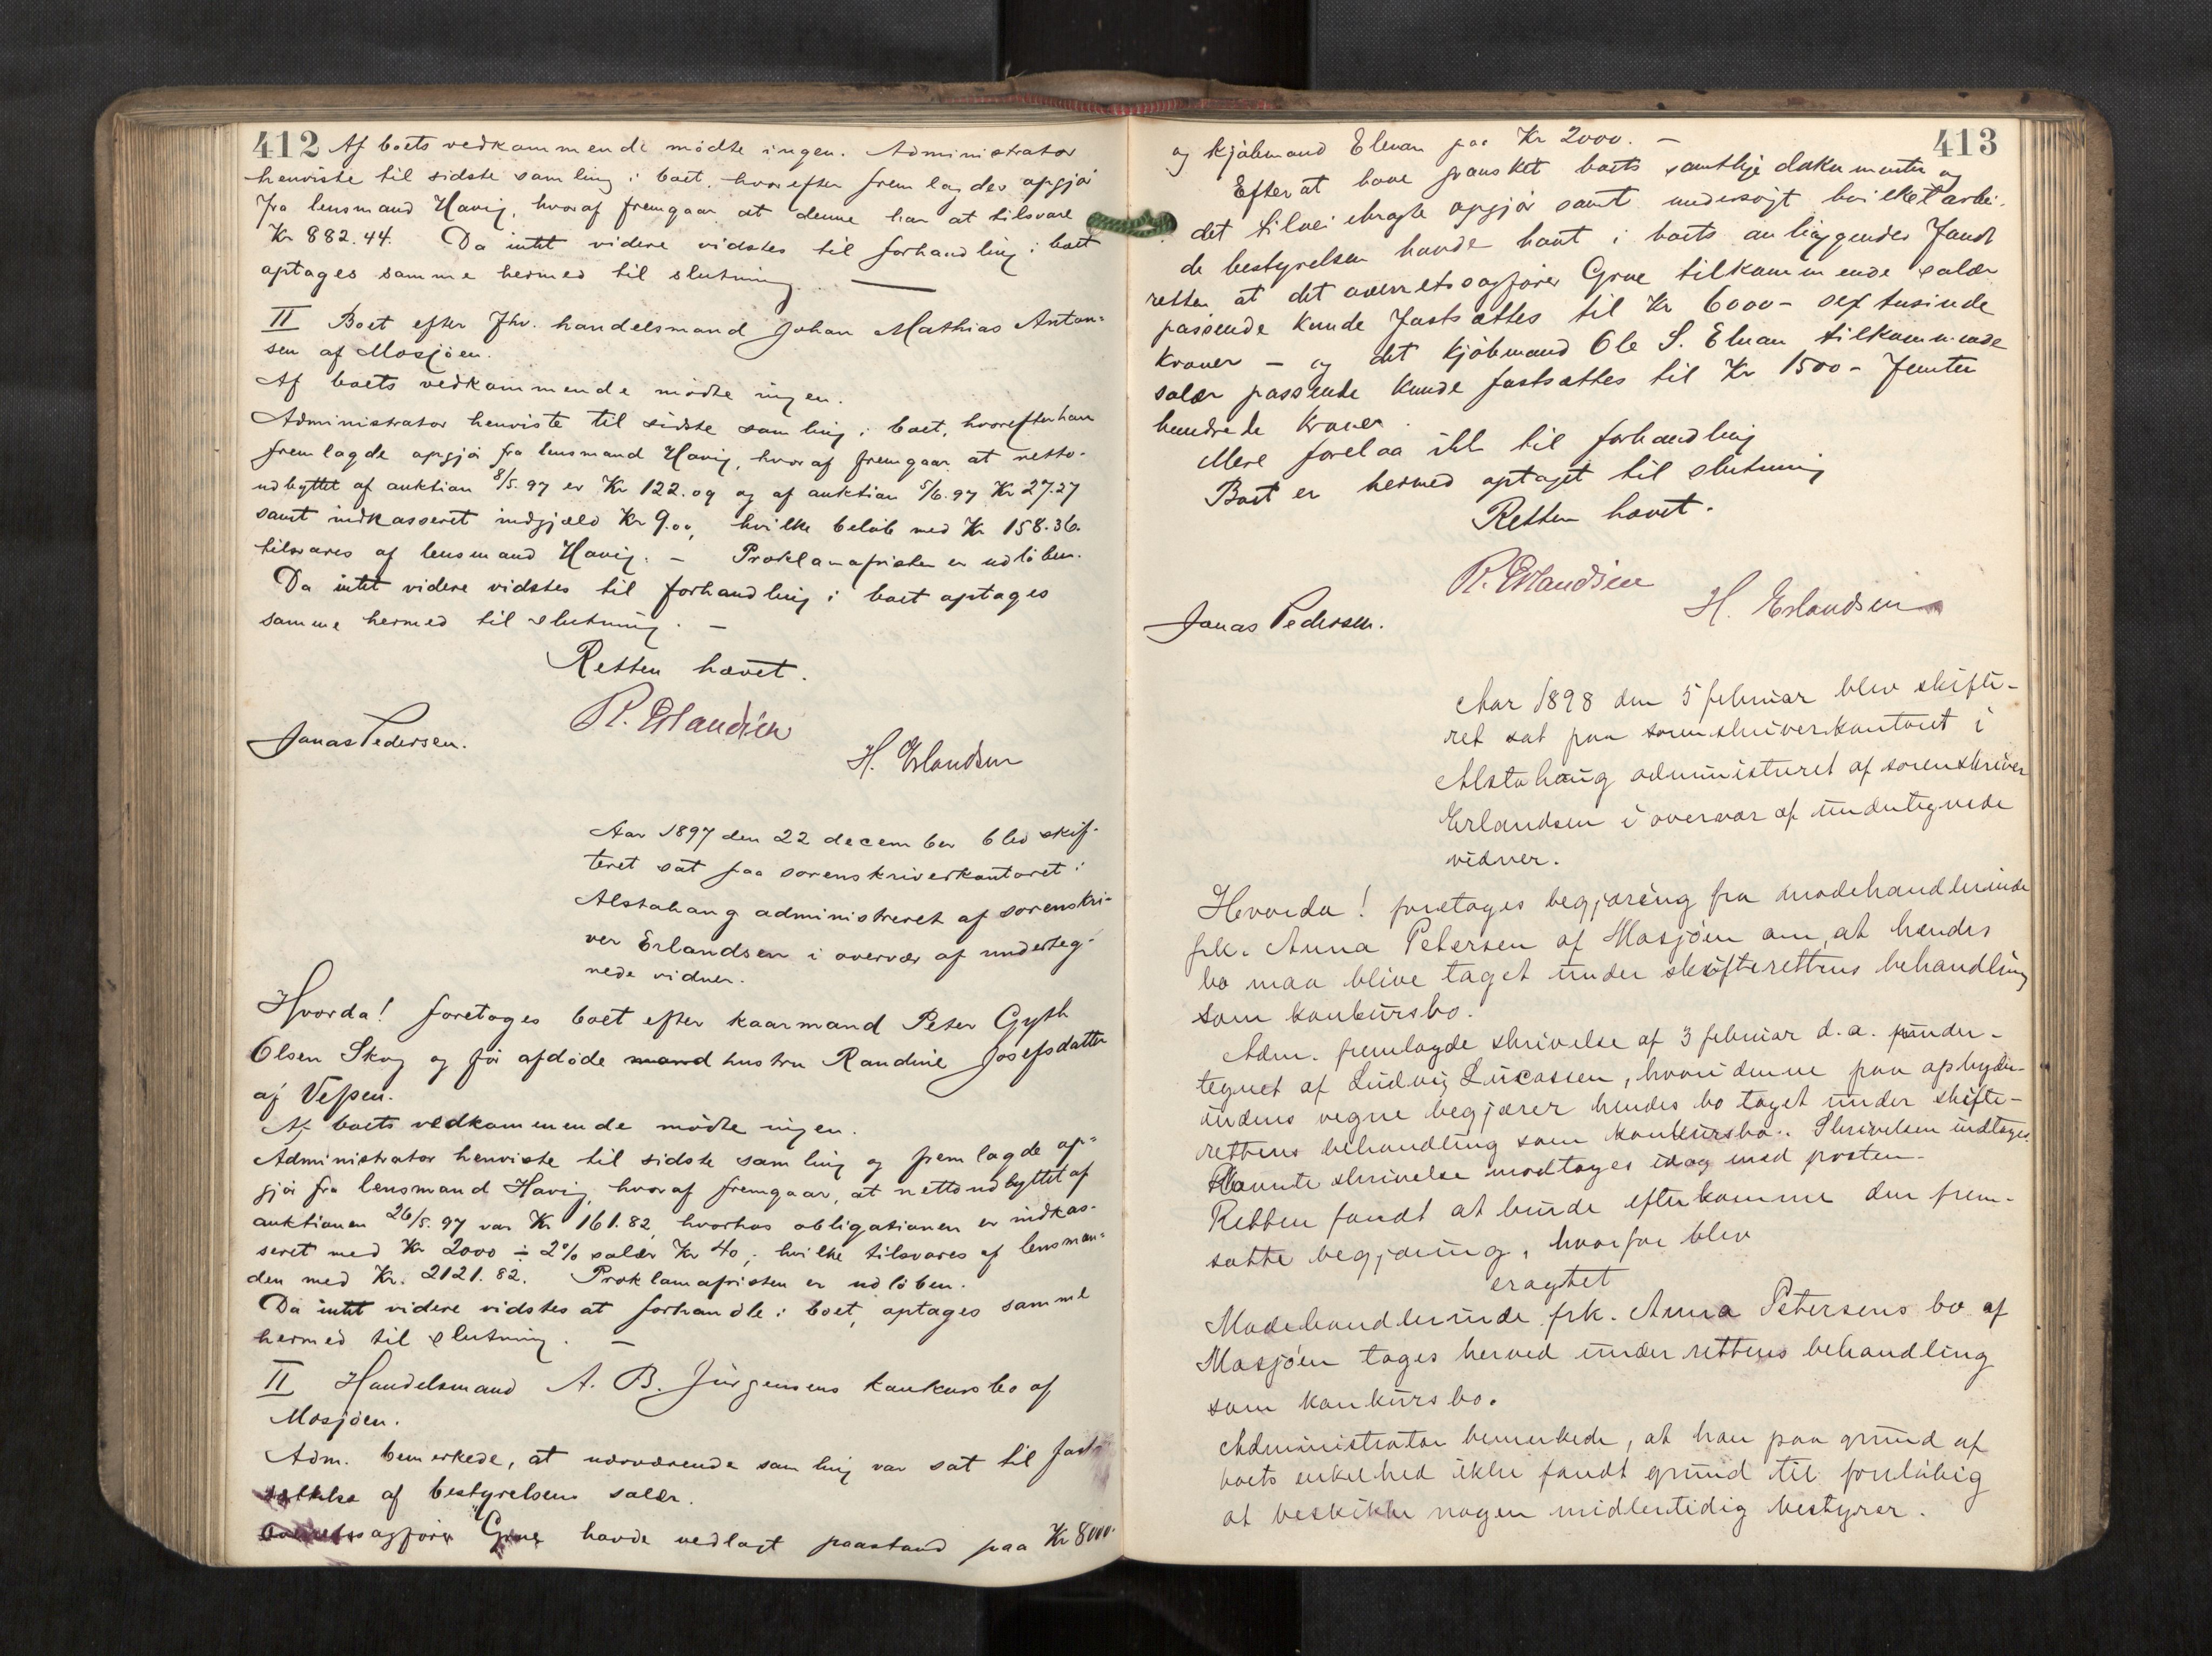 412 Af boets vedkommende mødte ingen. Administrator
henviste til sidste samling i boet, hvorefter fremlagdes opgjør
fra lensmand Havig, hvoraf fremgaar at denne har at tilsvare
Kr 882.44. Da intet videre vidstes til forhandling i boet
optages samme hermed til slutning. —
II Boet efter fhv. handelsmand Johan Mathias Anton-
sen af Mosjøen.
Af boets vedkommende mødte ingen.
Administrator henviste til sidste samling i boet, hvorefter han
fremlagde opgjør fra lensmand Havig, hvoraf fremgaar at netto-
udbyttet af auktion 8/5.97 er Kr 122.09 og af auktion 5/6.97 Kr 27.27
samt indkasseret indgjæld Kr 9.00, hvilke beløb med Kr 158.36.
tilsvares af lensmand Havig. — Proklamafristen er udløben.
Da intet videre vidstes til forhandling i boet optages
samme hermed til slutning. —
Retten hævet.
R. Erlandsen
Jonas Pedersen.
H. Erlandsen
Aar 1897 den 22 december blev skif-
teret sat paa sorenskriverkontoret i
Alstahaug administreret af sorenskri-
ver Erlandsen i overvær af underteg-
nede vidner.
Hvorda! foretoges boet efter kaarmand Peter Gyth
Olsen Skog og før afdøde mand hustru Randine Josefsdatter
af Vefsen.
Af boets vedkommende mødte ingen.
Administrator henviste til sidste samling og fremlagde op-
gjør fra lensmand Havig, hvoraf fremgaar, at nettoudbyttet af
auktionen 26/5.97 var Kr 161.82, hvorhos obligationen er indkas-
seret med Kr 2000 ÷ 2% salær Kr 40, hvilke tilsvares af lensman-
den med Kr. 2121.82. Proklamafristen er udløben.
Da intet videre vidstes at forhandle i boet, optages samme
hermed til slutning. —
II Handelsmand A. B. Jürgensens konkursbo af
Mosjøen.
Adm. bemerkede, at nærværende samling var sat til fast-
sættelse af bestyrelsens salær.
Overretssagfører Grue havde nedlagt paastand paa Kr 8000.
413
og kjøbmand Elnan paa Kr 2000. —
Efter at have gransket boets samtlige dokumenter og
det tilveiebragte opgjør samt undersøgt hvilket arbei-
de bestyrelsen havde havt i boets anliggender fandt
retten at det overretssagfører Grue tilkommende salær
passende kunde fastsættes til Kr 6000 – sex tusinde
kroner – og det kjøbmand Ole S. Elnan tilkommende
salær passende kunde fastsættes til Kr 1500 – femten
hundrede kroner.
Mere forelaa ikke til forhandling
Boet er hermed optaget til slutning
Retten hævet.
R. Erlandsen
Jonas Pedersen.
H. Erlandsen
Aar 1898 den 5 februar blev skifte-
ret sat paa sorenskriverkontoret i
Alstahaug administreret af sorenskriver
Erlandsen i overvær af undertegnede
vidner.
Hvorda! foretoges begjæring fra modehandlerinde
frk. Anna Petersen af Mosjøen om, at hendes
bo maa blive taget under skifterettens behandling
som konkursbo.
Adm. fremlagde skrivelse af 3 februar d.a. under-
tegnet af Ludvig Lucassen, hvori denne paa opbyder-
indens vegne begjærer hendes bo taget under skifte-
rettens behandling som konkursbo. Skrivelsen indtages
Nævnte skrivelse modtoges idag med posten.
Retten fandt at burde efterkomme den frem-
satte begjæring, hvorfor blev
eragtet
Modehandlerinde frk. Anna Petersens bo af
Mosjøen tages herved under rettens behandling
som konkursbo.
Administrator bemerkede, at han paa grund af
boets enkelhed ikke fandt grund til foreløbig
at beskikke nogen midlertidig bestyrer.